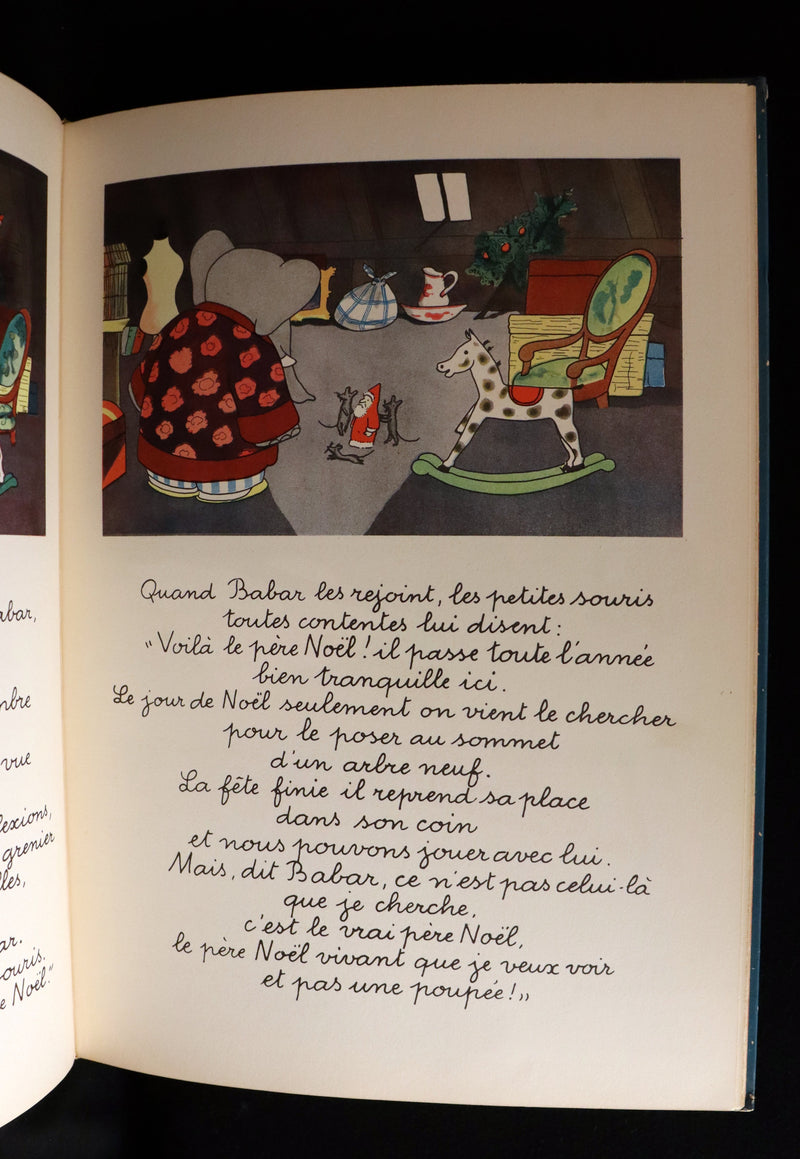 abar,
mbre
vue
lexions,
grenier
lles,
ar.
ouris.
e Noël."
Quand Babar les rejoint, les petites souris
toutes contentes lui disent :
"Voilà le père Noël ! il passe toute l'année
bien tranquille ici.
Le jour de Noël seulement on vient le chercher
pour le poser au sommet
d'un arbre neuf.
La fête finie il reprend sa place
dans son coin
et nous pouvons jouer avec lui.
Mais, dit Babar, ce n'est pas celui-là
que je cherche,
c'est le vrai père Noël,
le père Noël vivant que je veux voir
et pas une poupée !"